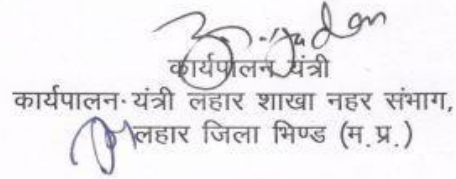 कार्यपालन यंत्री
कार्यपालन यंत्री लहार शाखा नहर संभाग,
लहार जिला भिण्ड (म.प्र.)